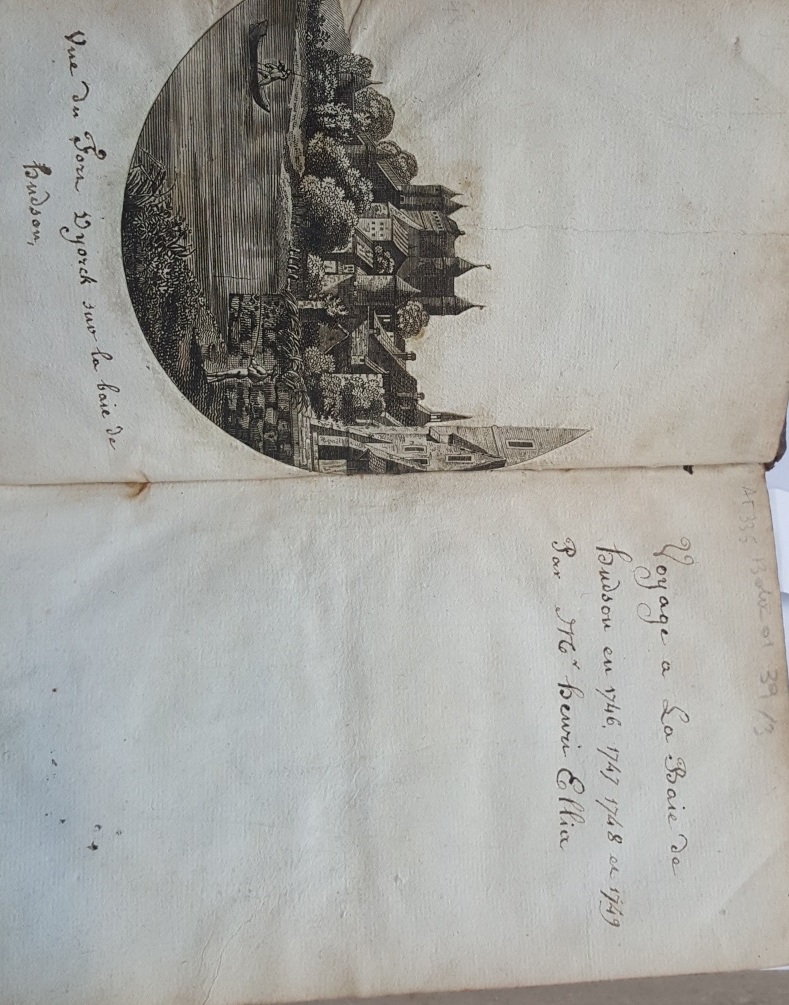 Vue du Forn Dyorck sur la baie de
hudson,
Voyage a La Baie de
hudson en 1746, 1747 1748 et 1749
Par Mr henri Ellia